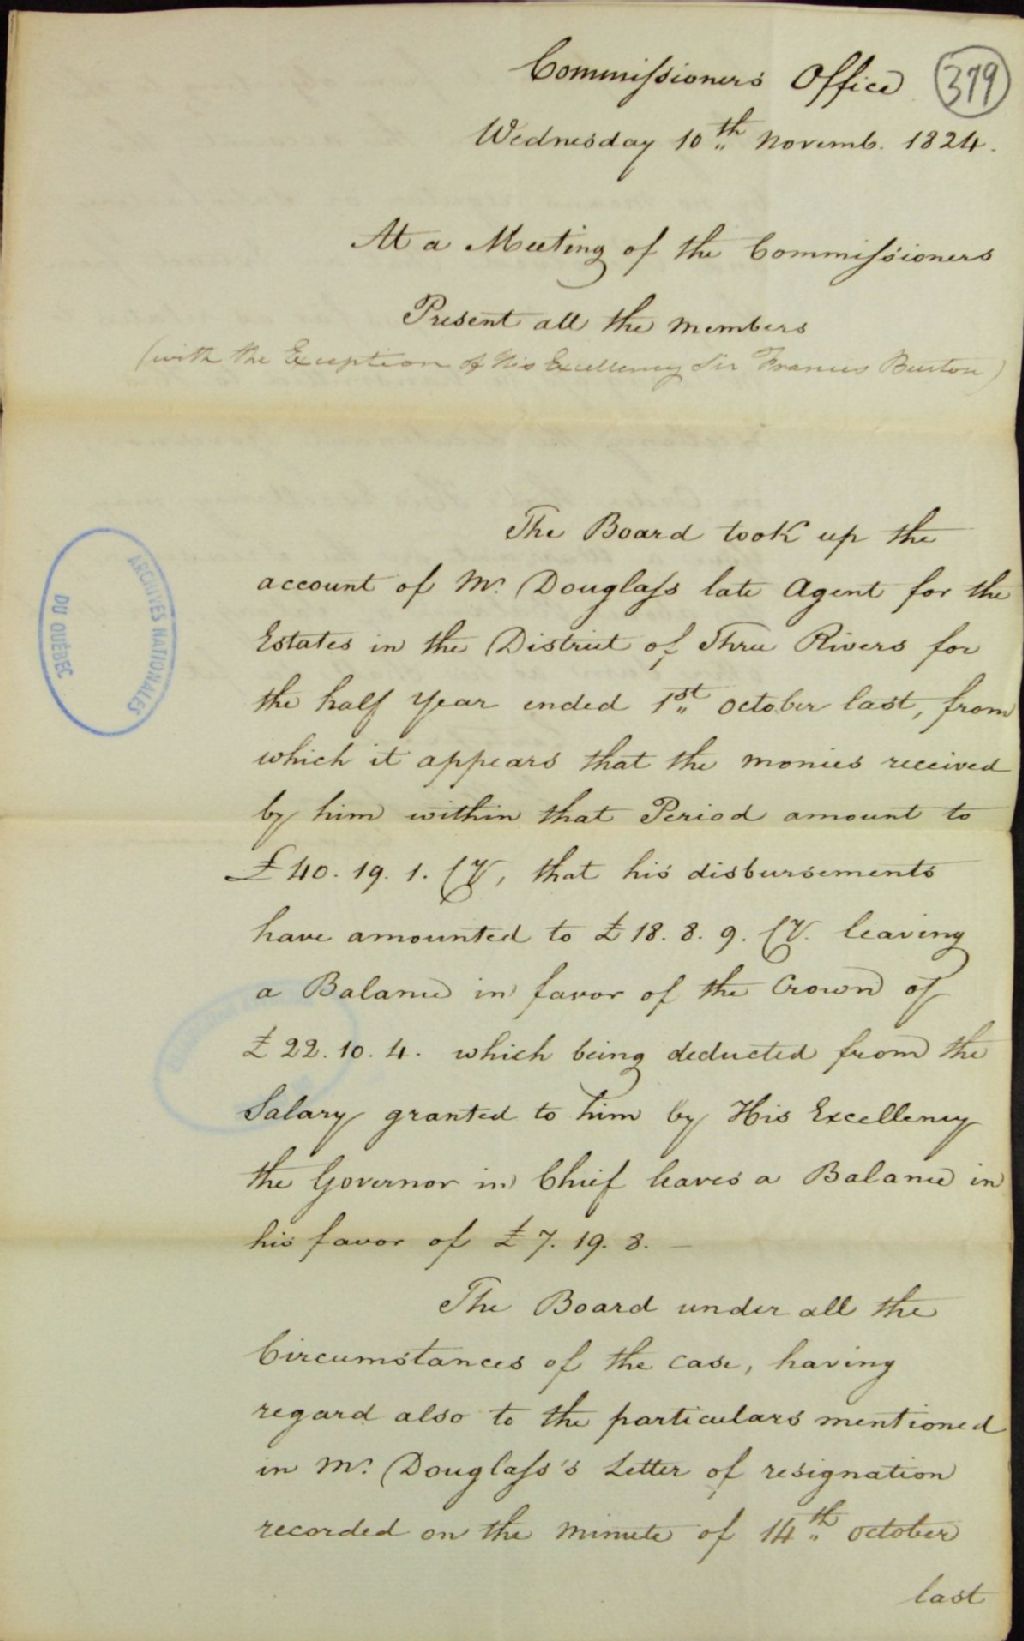 Commissioners Office
379
Wednesday 10th Novemb. 1824.
At a Meeting of the Commissioners
Present all the members
(with the Exception of His Excellency Sir Francis Burton)
The Board took up the
account of Mr. Douglass late Agent for the
Estates in the District of Three Rivers for
the half Year ended 1st October last, from
which it appears that the monies received
by him within that Period amount to
£40. 19. 1. Cy, that his disbursements
have amounted to £18. 8. 9. Cy. leaving
a Balance in favor of the Crown of
£22. 10. 4. which being deducted from the
Salary granted to him by His Excellency
the Governor in Chief leaves a Balance in
his favor of £7. 19. 8. —
The Board under all the
Circumstances of the case, having
regard also to the particulars mentioned
in Mr. Douglass's Letter of resignation
recorded on the minute of 14th October
last
ARCHIVES NATIONALES
DU QUÉBEC